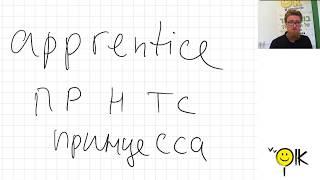 apprentice
ПР Н ТС
принцесса
OK